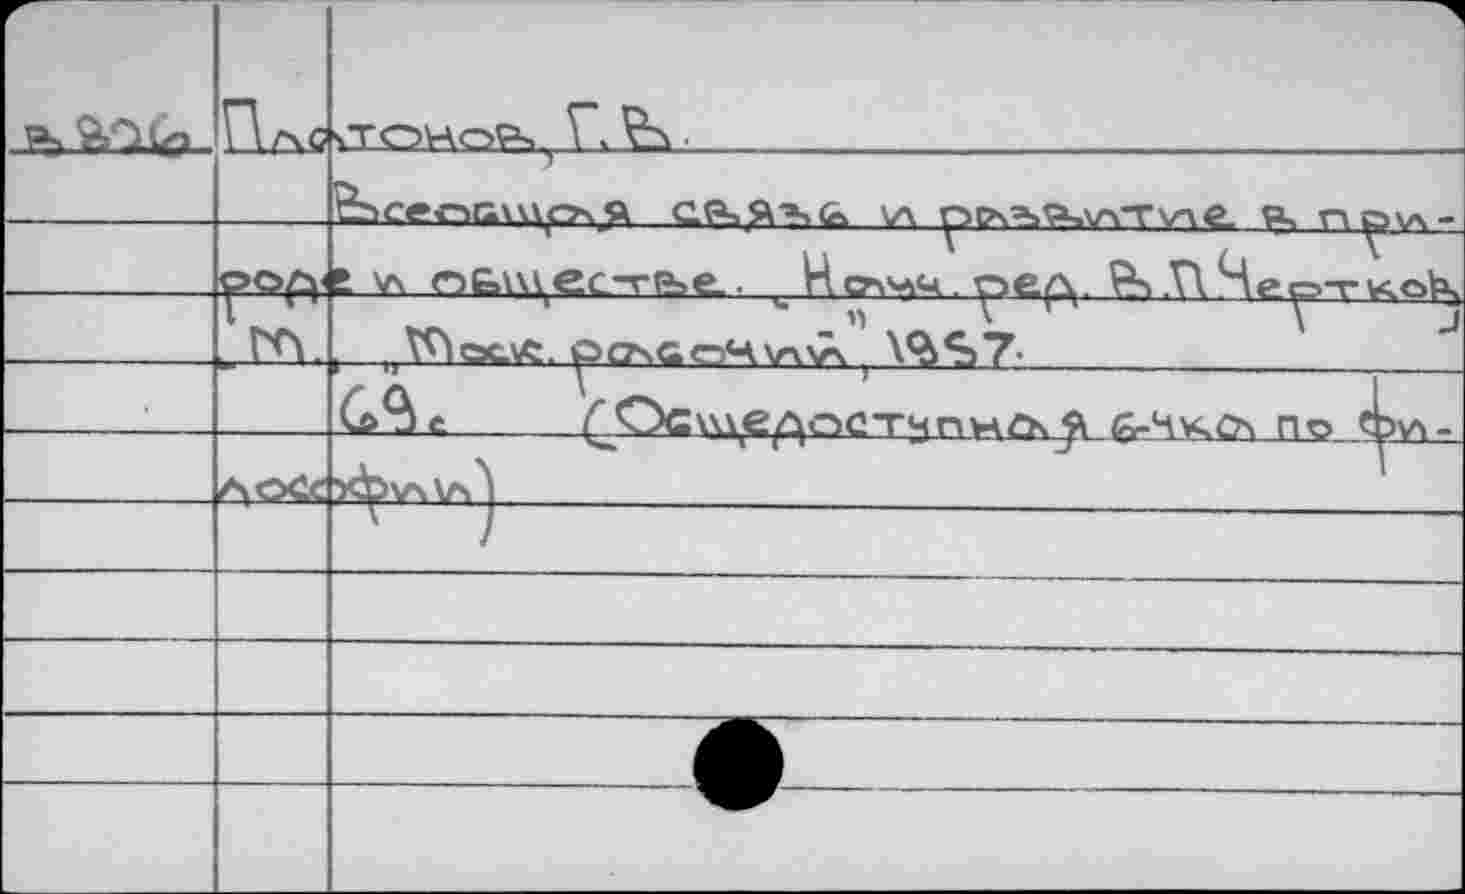 Платонов, Г.В.
Всеобщая связь и развитие в при-
роде и обществе. Научн. ред. В.П.Чертков,
М., „Моск. рабочий", 1957.
69с (Общедоступная б-чка по фи-
лософии)